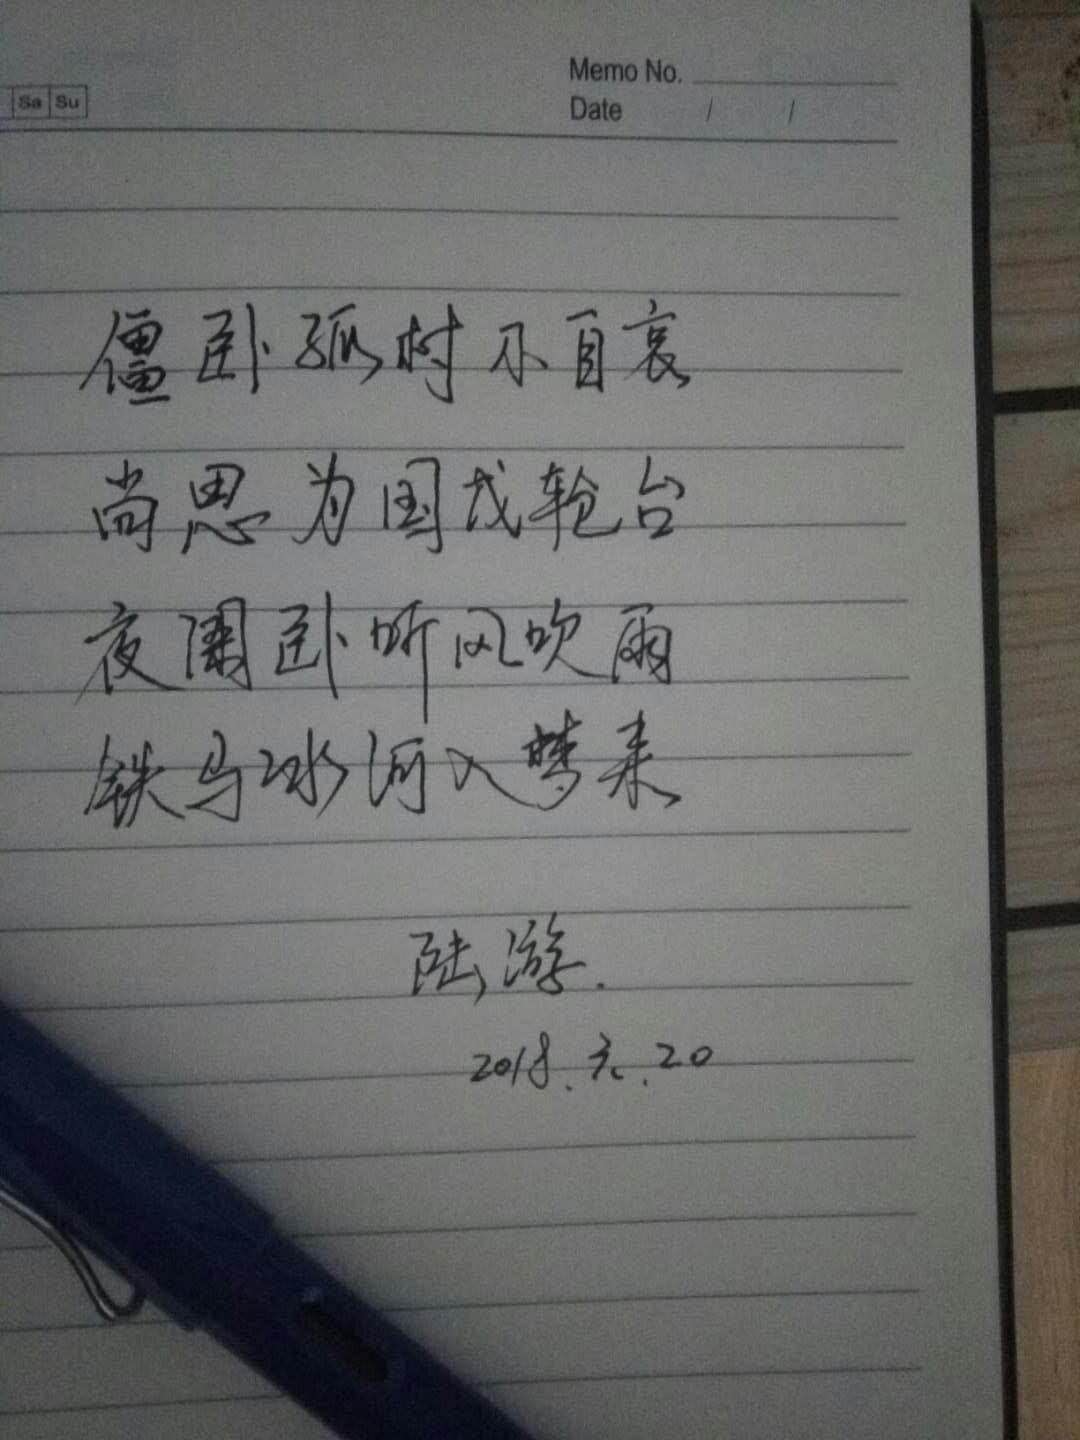 Memo No.
Sa Su
Date / /
僵卧孤村不自哀
尚思为国戍轮台
夜阑卧听风吹雨
铁马冰河入梦来
陆游.
2018.元.20